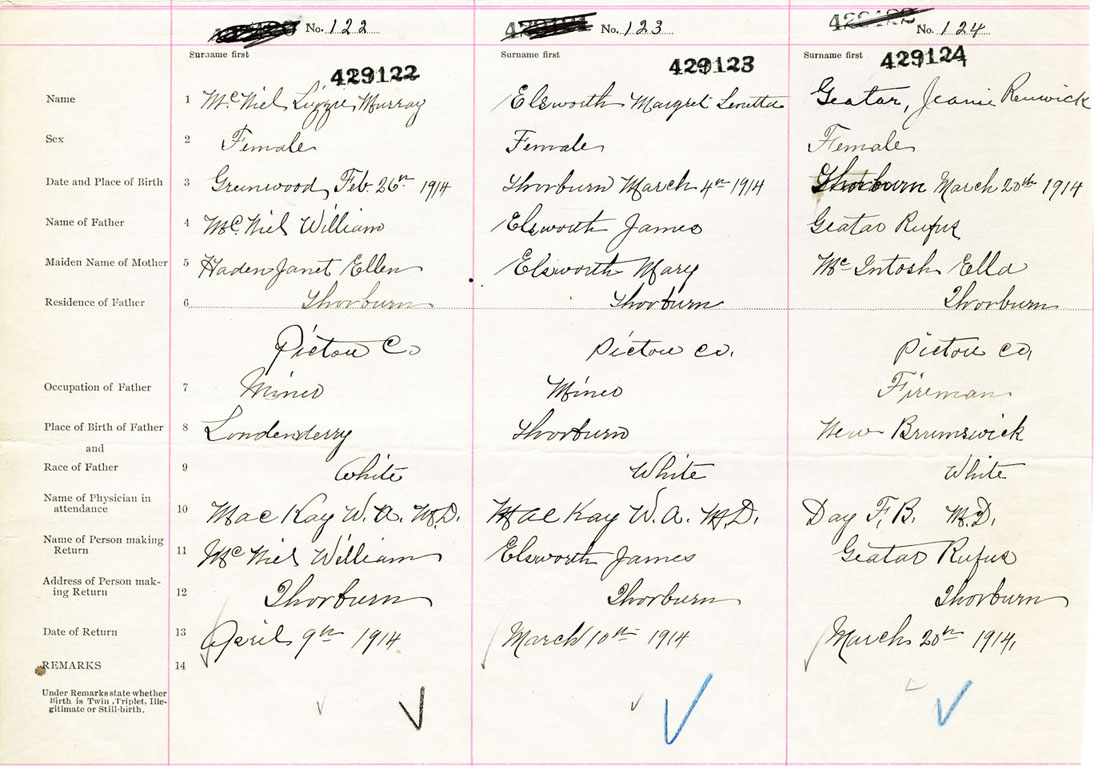 No. 122 No. 123 No. 124
Surname first Surname first Surname first
429122 429123 429124
Name 1 McNiel Lizzie Murray Elsworth Margret Geatar, Jeanie Renwick
Sex 2 Female Female Female
Date and Place of Birth 3 Greenwood Feb. 26th 1914 Thorburn March 4th 1914 Thorburn March 20th 1914
Name of Father 4 McNiel William Elsworth James Geatar Rufus
Maiden Name of Mother 5 Haden Janet Ellen Elsworth Mary McIntosh Ella
Residence of Father 6 Thorburn Thorburn Thorburn
Pictou Co Pictou Co. Pictou Co,
Occupation of Father 7 Miner Miner Fireman
Place of Birth of Father 8 Londenderry Thorburn New Brunswick
and
Race of Father 9 White White White
Name of Physician in
attendance 10 MacKay W. A. M.D. MacKay W. A. M.D. Day F. B. M.D.
Name of Person making
Return 11 McNiel William Elsworth James Geatar Rufus
Address of Person mak-
ing Return 12 Thorburn Thorburn Thorburn
Date of Return 13 April 9th 1914 March 10th 1914 March 20th 1914,
REMARKS 14
Under Remarks state whether
Birth is Twin, Triplet, Ille-
gitimate or Still-birth.